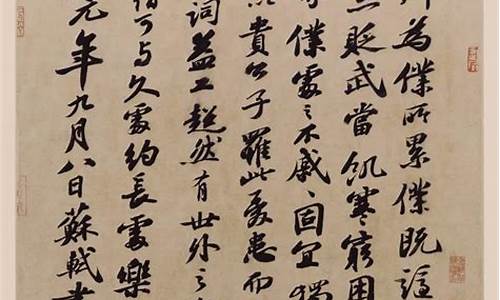 為僕所累僕既謫
亦貶武當飢寒窮困
僕處之不戚戚固宜獨
以貴公子罹此憂患而
詞益工超然有世外之
謂可与久處約長處樂
元年九月八日蘇軾書